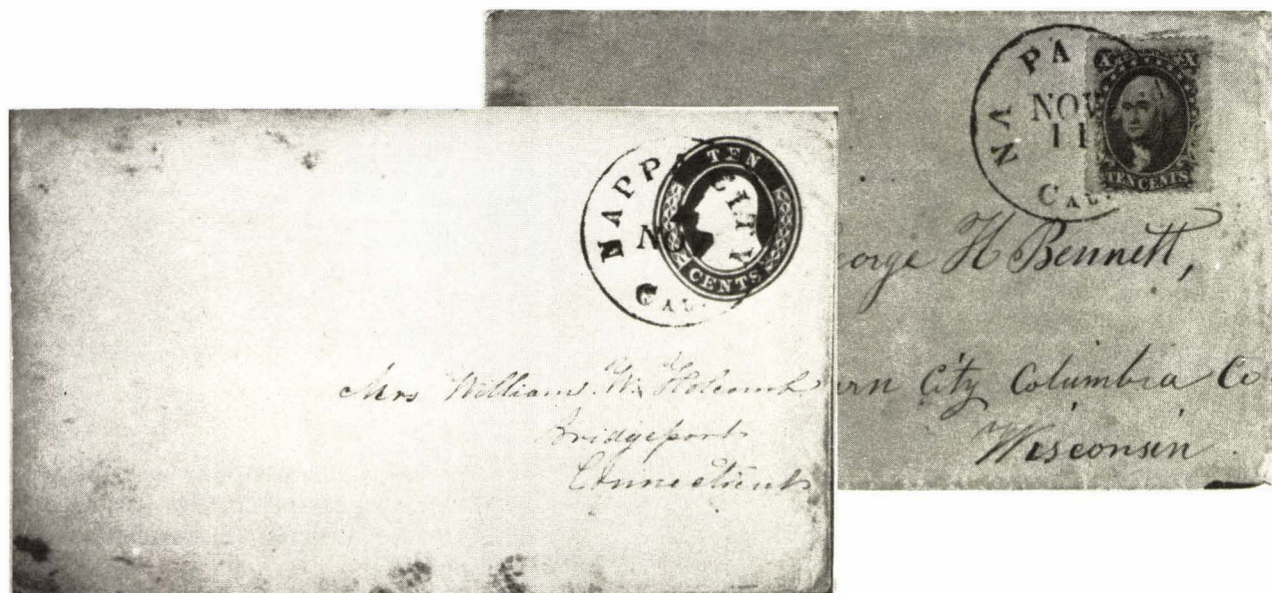 NAPPA CITY
TEN
CENTS
CAL.
Mrs William W. Holcomb
Bridgeport
Connecticut
NA PA
NOV
11
CAL.
X X
TEN CENTS
George H Bennett,
City Columbia Co
Wisconsin